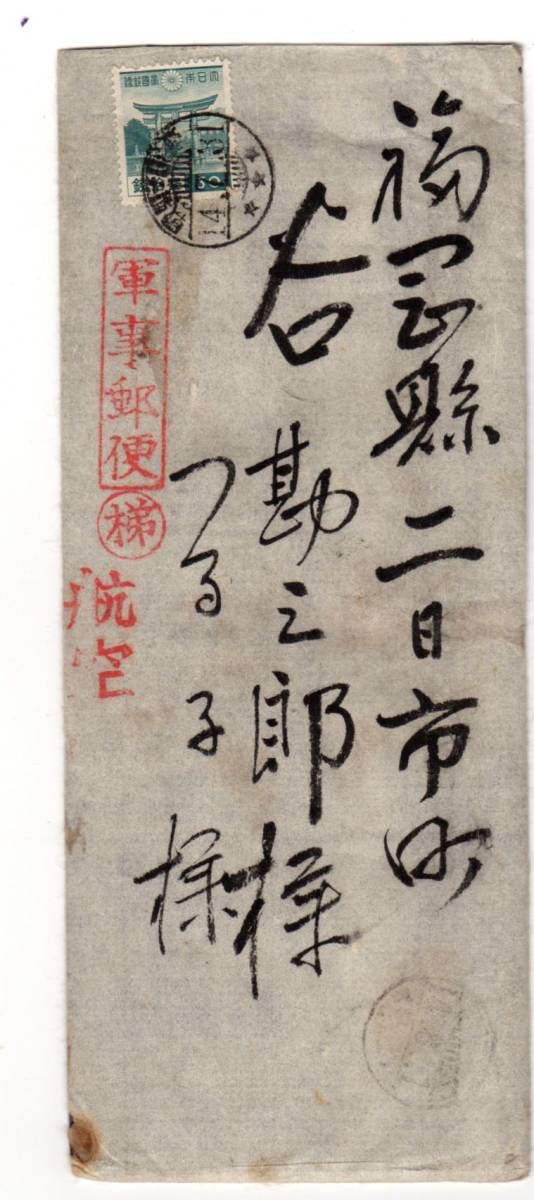 福岡縣二日市町
谷勘三郎様
つる子様
大日本帝國郵便
30
14.7.31
軍事郵便
梯
航空